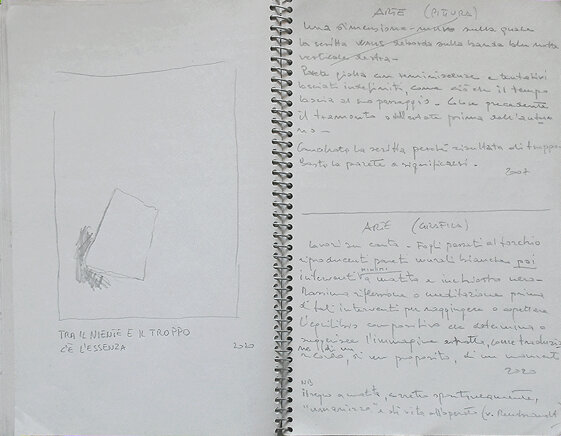 TRA IL NIENTE E IL TROPPO
C'È L'ESSENZA
2020
ARTE (PITTURA)
Una dimensione sulla quale
la scritta Venus deborda sulla banda blu notte
verticale destra
Porta gialla con reminiscenze e tentativi
lasciati indefiniti, come ciò che il tempo
lascia al suo passaggio. Luce precedente
il tramonto dell'estate prima dell'autun
no -
Cancellato la scritta perché risultata di troppo
Basta la parete a significarsi.
2007
ARTE (GRAFICA)
Lavori su carta - Fogli passati al torchio
riproducenti pareti murali bianche poi
interventi minimi a matita e inchiostro nero
Massima riflessione o meditazione prima
di tali interventi per raggiungere o aspettare
l'equilibrio compositivo che determina o
suggerisce l'immagine esatta, come traduzio
ne di un
ricordo, di un proposito, di un momento
2020
NB
Segno a matita, spontaneamente,
"umanizza" e dà vita all'opera (v. Rembrandt)